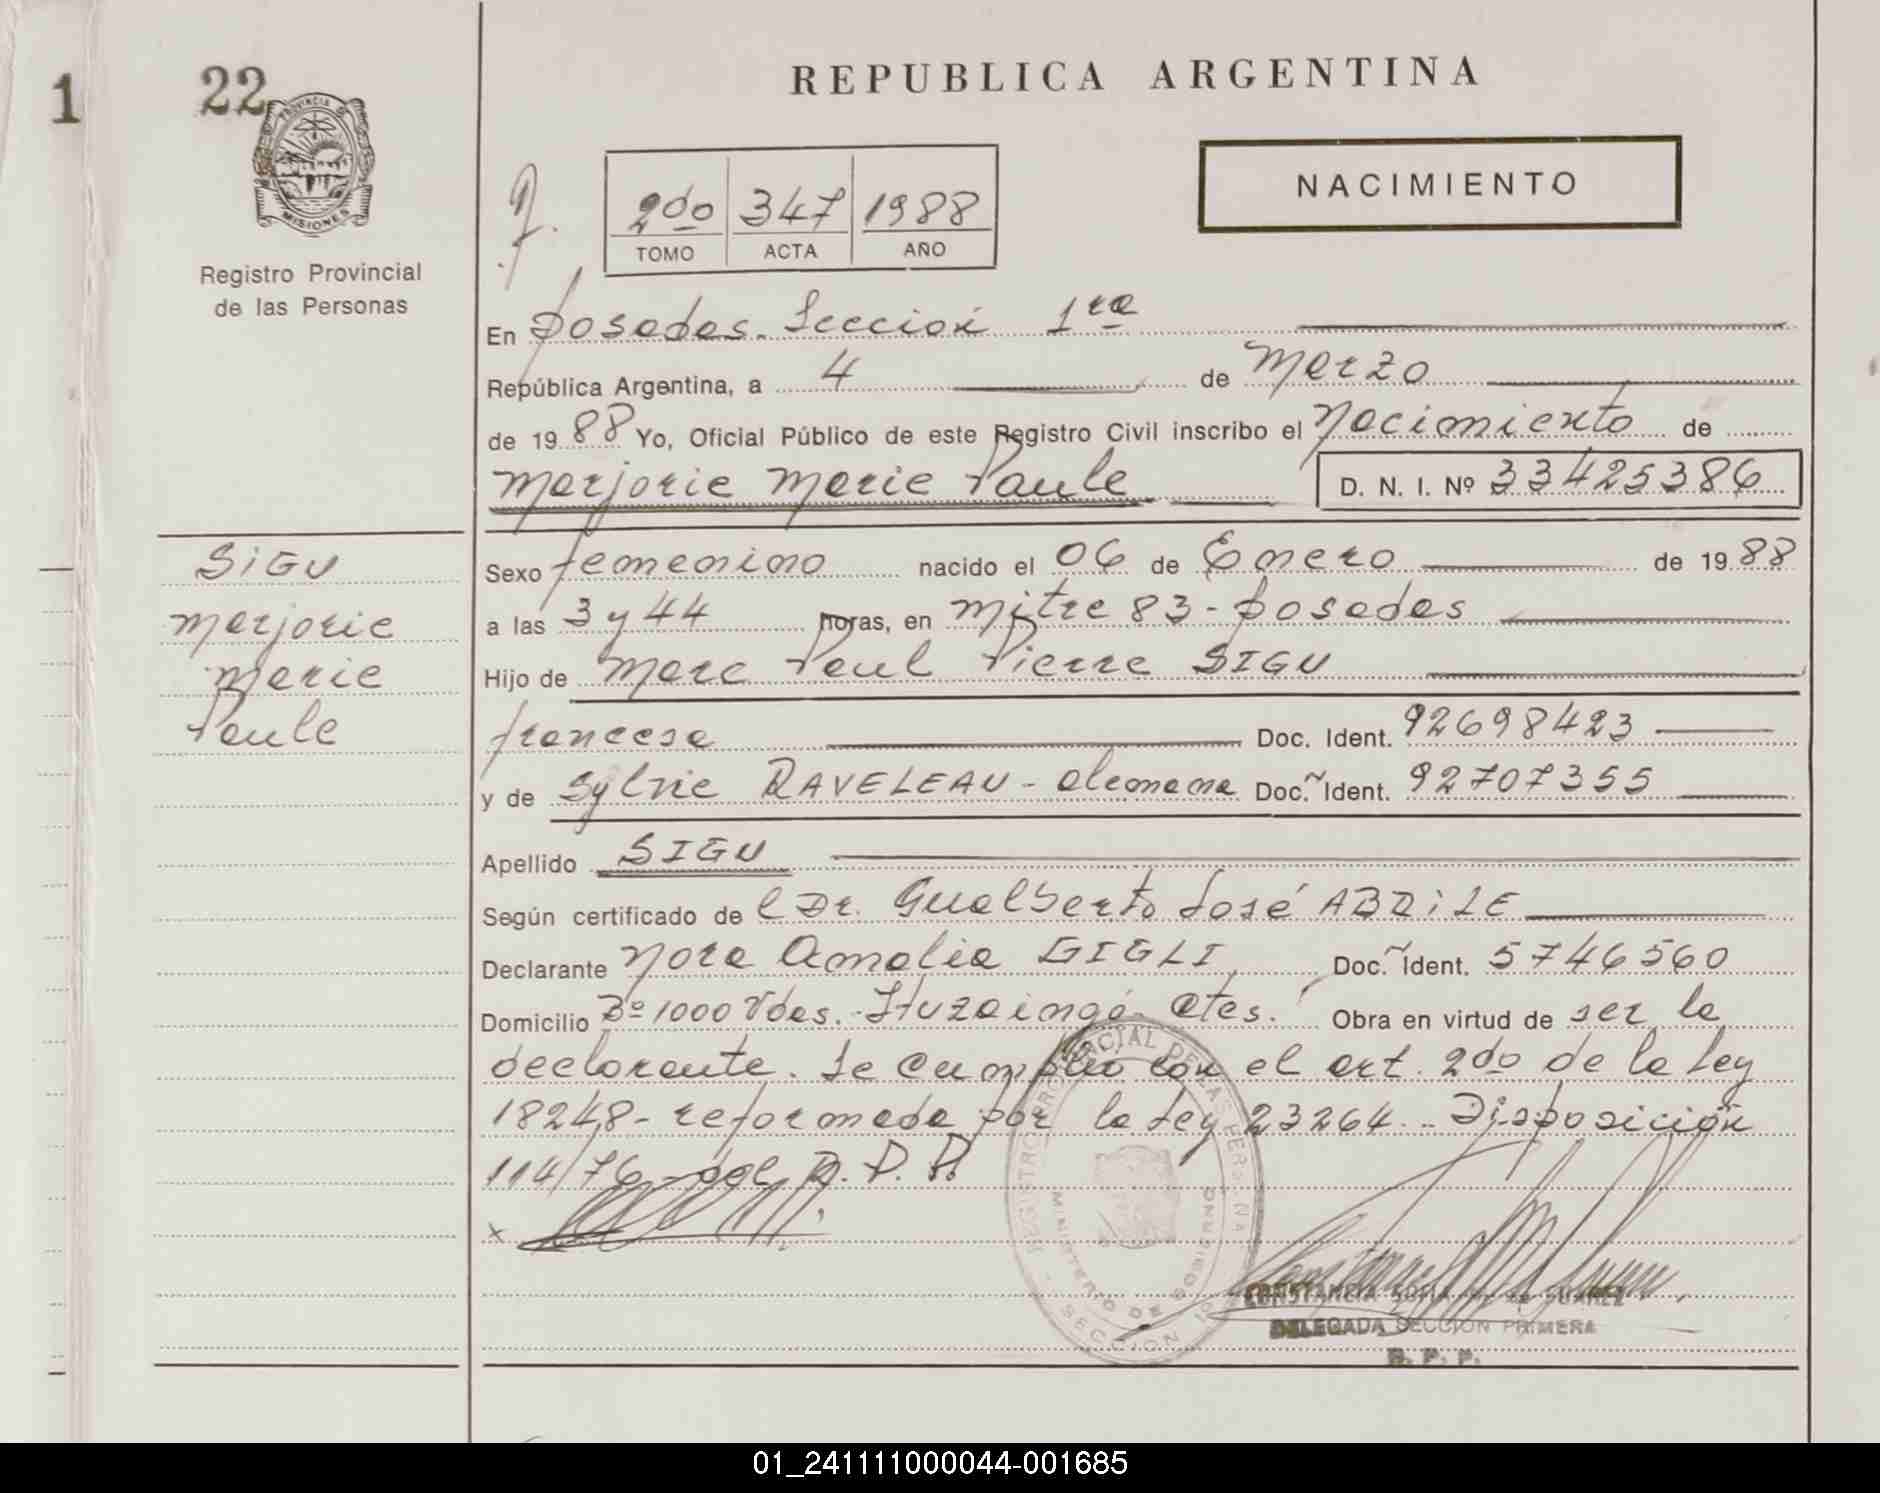 1
22
PROVINCIA DE
MISIONES
Registro Provincial
de las Personas
REPUBLICA ARGENTINA
NACIMIENTO
2do 347 1988
TOMO ACTA AÑO
En Posadas. Sección 1ra
República Argentina, a 4 de Marzo
de 1988 Yo, Oficial Público de este Registro Civil inscribo el Nacimiento de
Marjorie Marie Paule D. N. I. Nº 33425386
SIGU
Marjorie
Marie
Paule
Sexo femenino nacido el 06 de Enero de 1988
a las 3 y 44 horas, en Mitre 83 - Posadas
Hijo de Marc Paul Pierre SIGU
francesa Doc. Ident. 92698423
y de Sylvie RAVELEAU - alemana Doc. Ident. 92707355
Apellido SIGU
Según certificado de l Dr. Gualberto José ABRILE
Declarante Nora Amalia GIGLI Doc. Ident. 5746560
Domicilio Bº 1000 Vdas. - Ituzaingó Ctes. Obra en virtud de ser la
declarante. Se cumplió con el art. 2do de la Ley
18248 - reformada por la Ley 23264. - Disposición
114/76 - del R. P. P.
x
REGISTRO PROVINCIAL DE LAS PERSONAS
MINISTERIO DE GOBIERNO
SECCION 1a
CONSTANCIA SOFIA DE SUAREZ
DELEGADA SECCION PRIMERA
R. P. P.
01_241111000044-001685